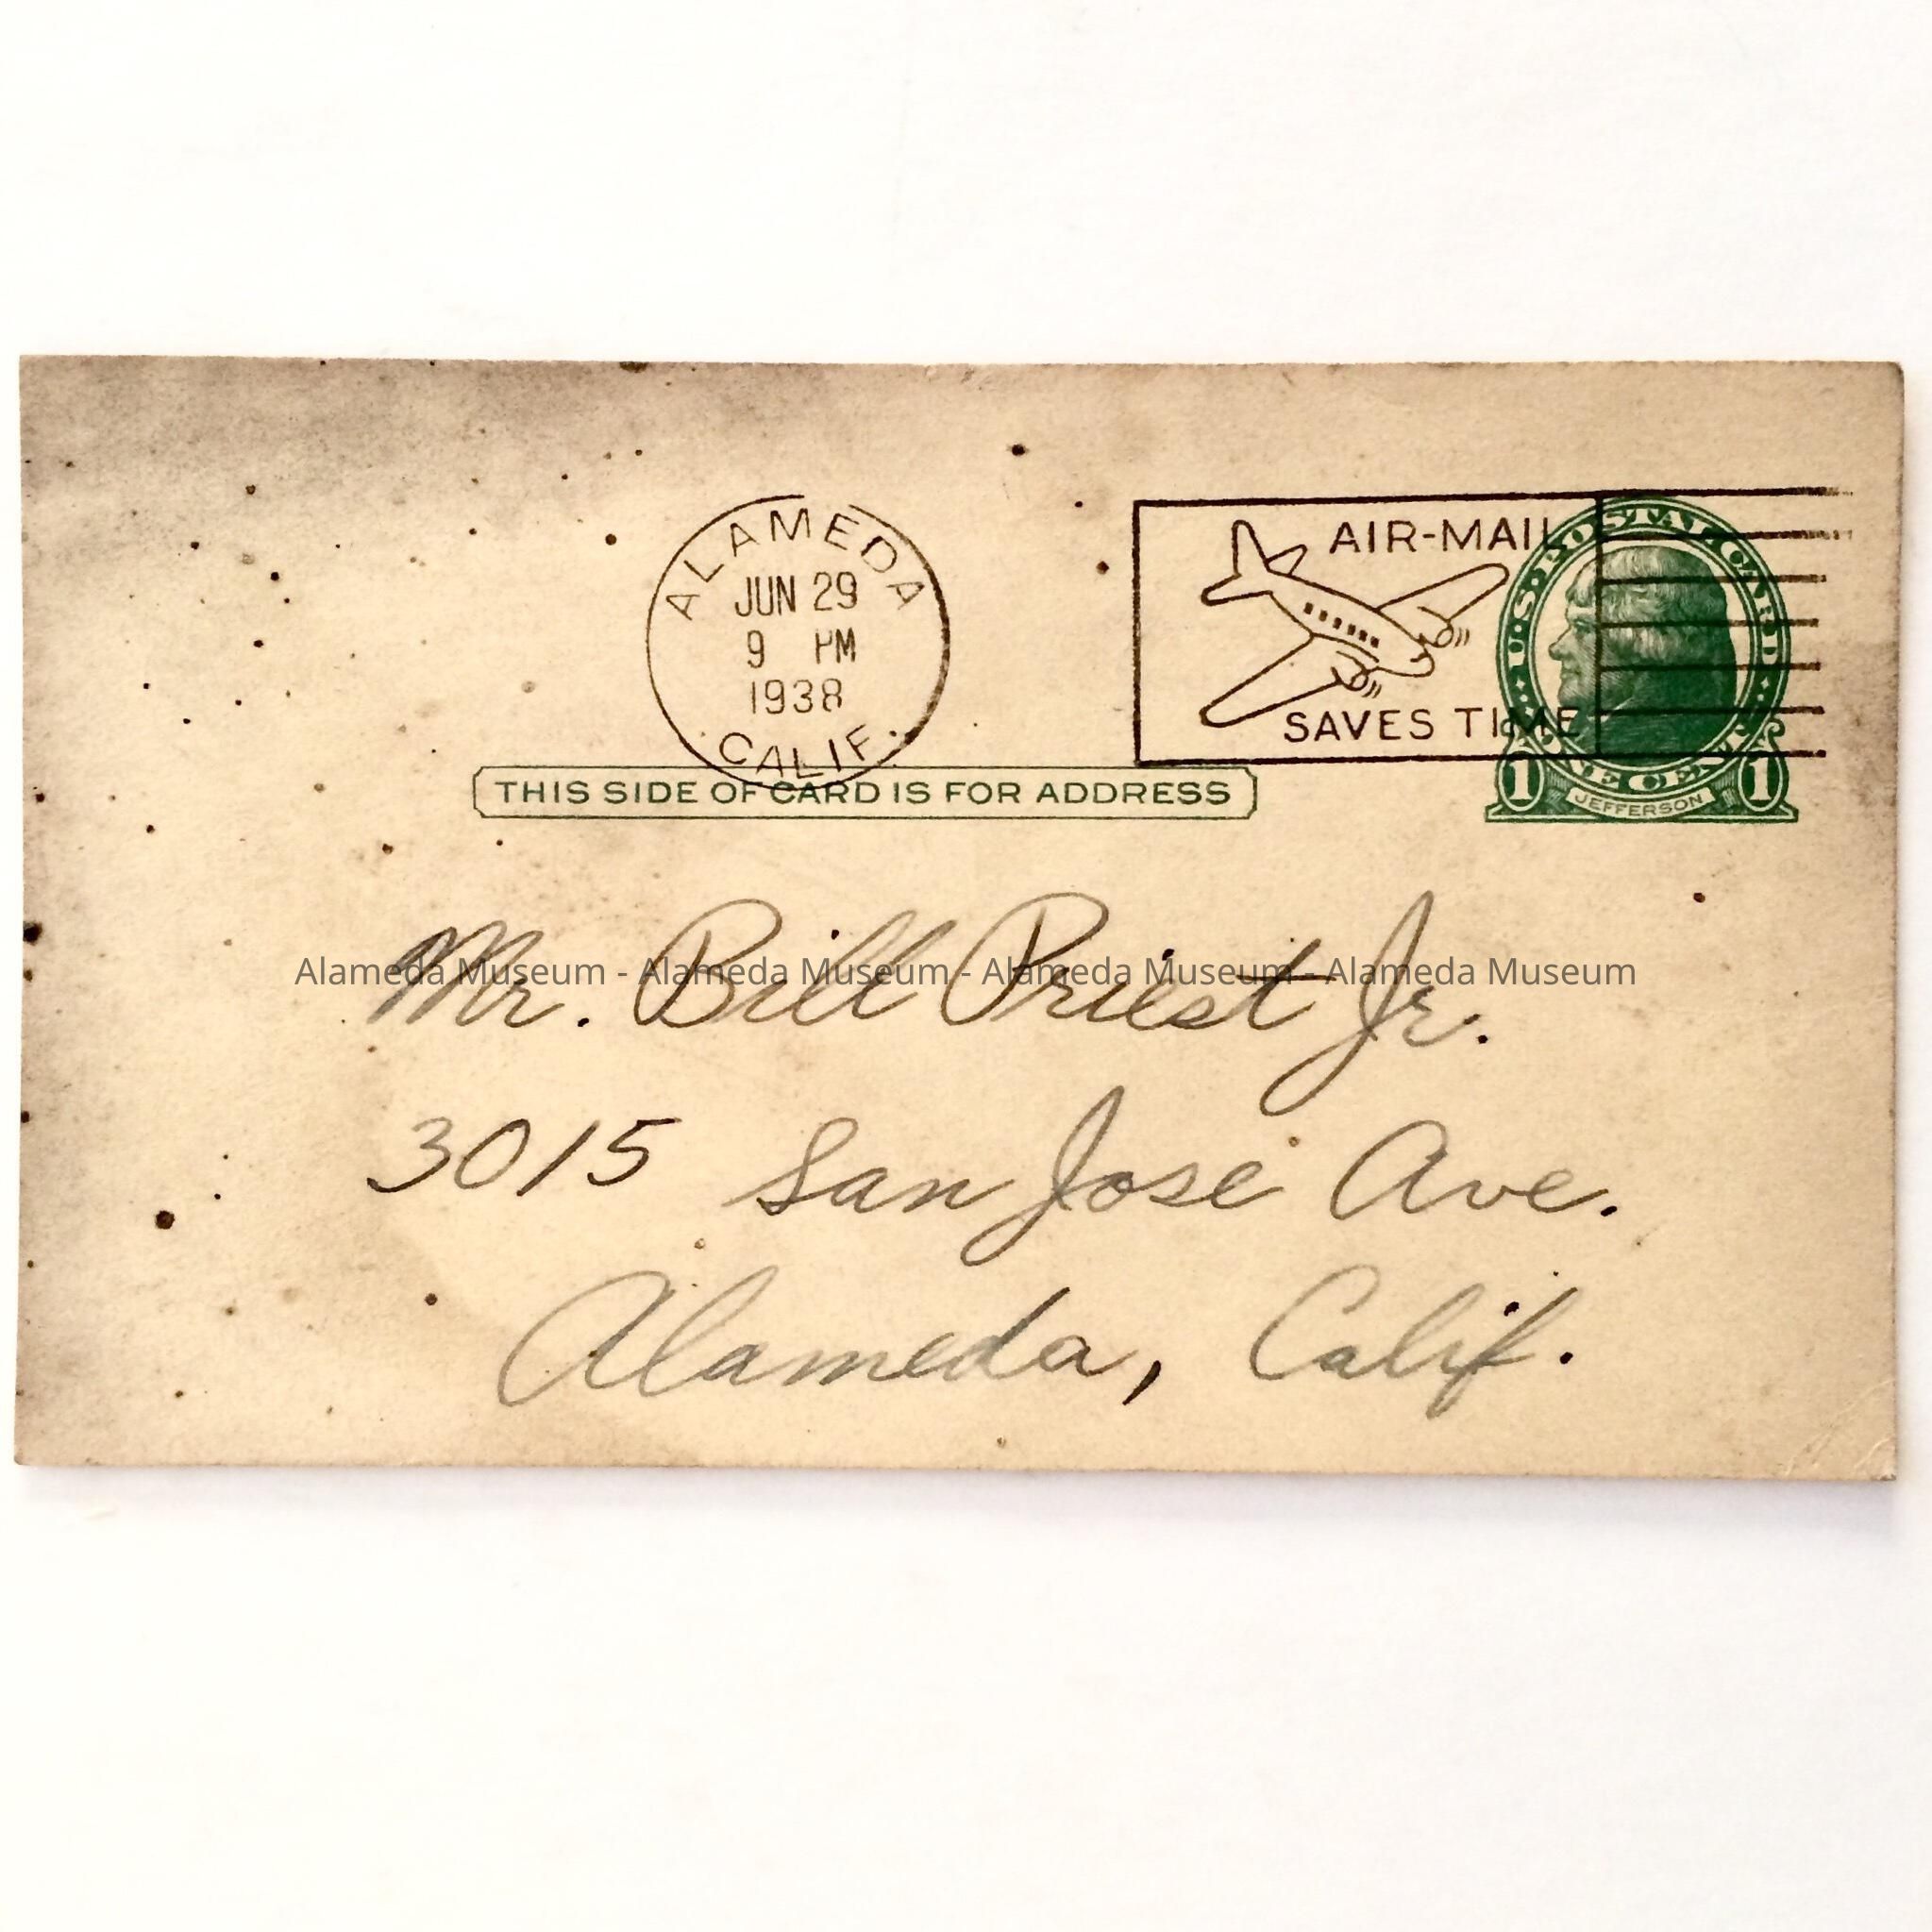 ALAMEDA
JUN 29
9 PM
1938
CALIF.
AIR-MAIL
SAVES TIME
U.S. POSTAL CARD
ONE CENT
1 JEFFERSON 1
THIS SIDE OF CARD IS FOR ADDRESS
Mr. Bill Priest Jr.
Alameda Museum - Alameda Museum - Alameda Museum - Alameda Museum
3015 San Jose Ave.
Alameda, Calif.